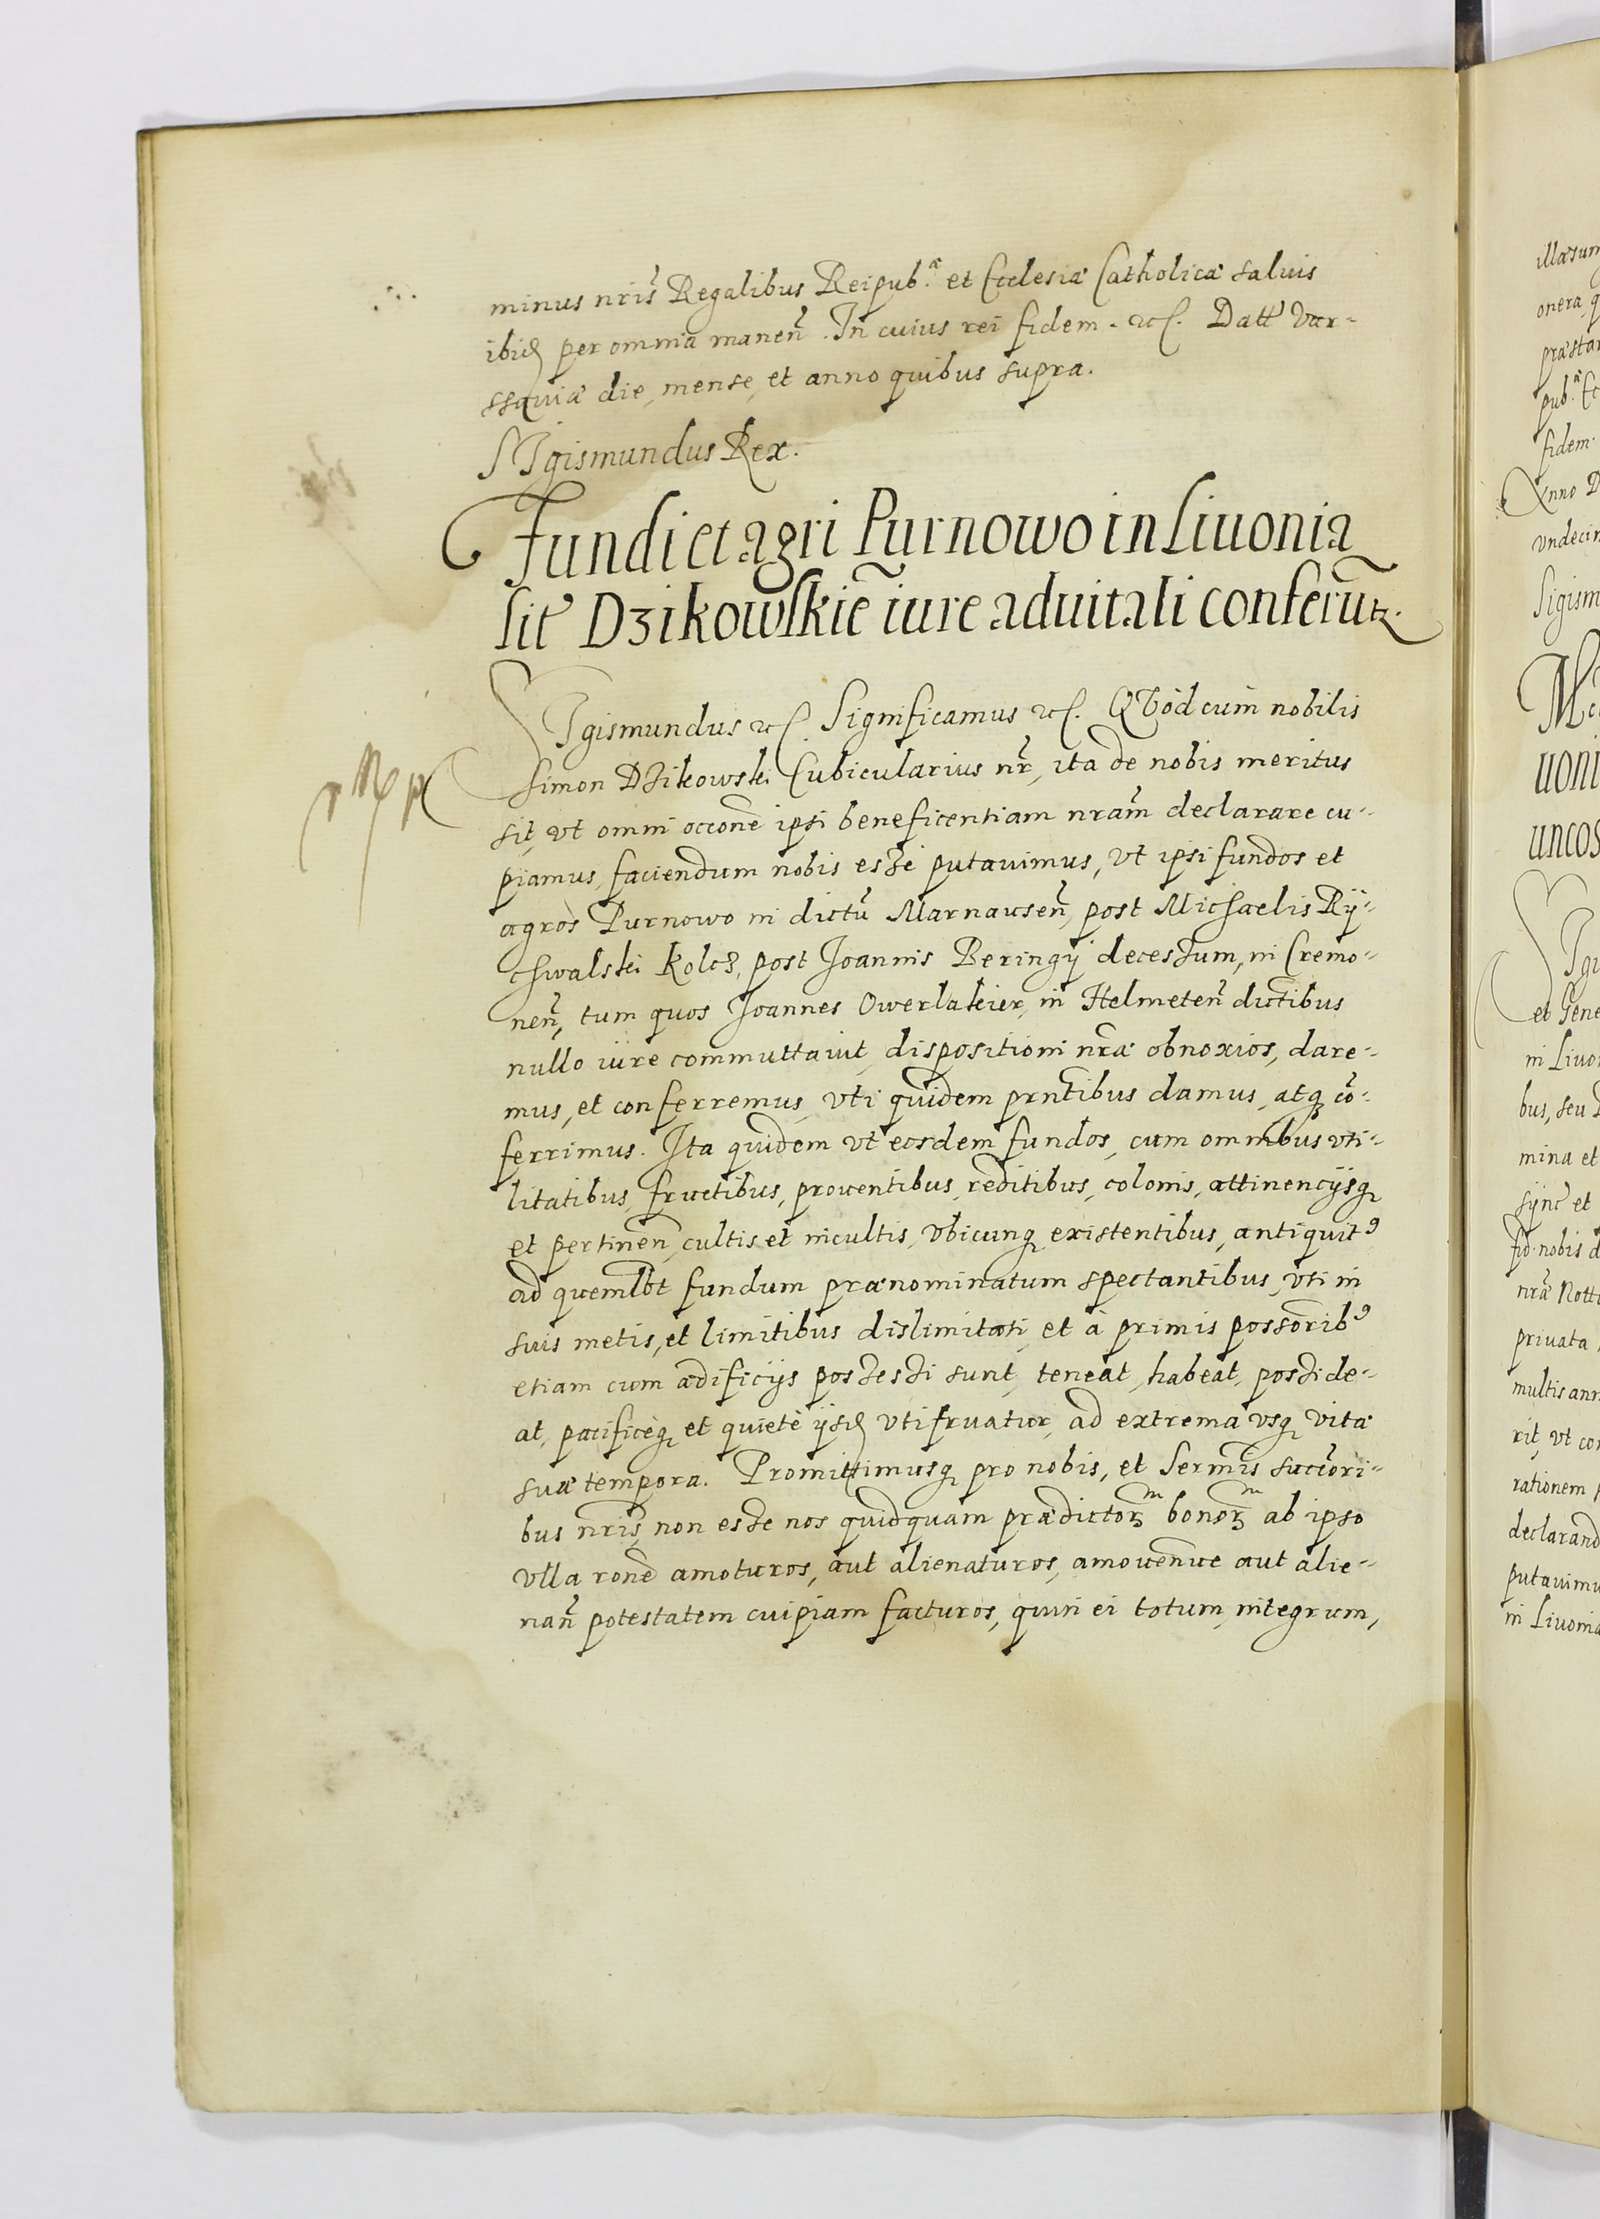 minus nris̃ Regalibus Reipub.æ et Ecclesiæ Catholicæ saluis
ibid per omnia manen̄. In cuius rei fidem. etc. Datt Var-
ssauiæ die, mense, et anno quibus supra.
SIgismundus Rex.
Fundi et agri Purnowo in Liuonia
sit̃ Dzikowskiẽ iure aduitali conferũtr.
SIgismundus etc. Significamus etc. QVod cum nobilis
Simon Dzikowski Cubicularius nr̃, ita de nobis meritus
sit, vt omni occone ipsi beneficentiam nram̃ declarare cu-
piamus, faciendum nobis esse putauimus, vt ipsi fundos et
agros Purnowo in dictũ Marnausen̄, post Michaelis Ry-
chwalski Kolcz, post Joannis Beringij decessum, in Cremo-
nen̄, tum quos Joannes Owerlakier, in Helmeten̄ dictibus
nullo iure commuttauit, dispositioni nræ obnoxios, dare-
mus, et conferremus, vti quidem prntibus damus, atq cõ-
ferrimus. Ita quidem vt eosdem fundos, cum omnibus vti-
litatibus, fructibus, prouentibus, reditibus, colonis, attinencijsq
et pertinen̄, cultis et incultis, vbicunq existentibus, antiquit9
ad quemlbt fundum prænominatum spectantibus, vti in
suis metis, et limitibus dislimitati, et à primis possorib9
etiam cum ædificijs possessi sunt, teneat, habeat, posside-
at, pacificèq et quietè ijsd vtifruatur, ad extrema vsq vitæ
suæ tempora. Promittimusq pro nobis, et Sermis succori-
bus nris̃, non esse nos quidquam prædictorm bonorm ab ipso
vlla rone amoturos, aut alienaturos, amouenue aut alie-
nan̄ potestatem cuipiam facturos, quin ei totum, integrum,
illæsum
onera, q
præstar
pub.æ Ec
fidem.
Anno D
vndecim
Sigism
uoni
uncos
SIgi
et Gene
in Liuo
bus, seu
mina et
nræ Nott
priuata
multis ann
rit, vt co
rationem
declarand
putauimu
in Liuonia